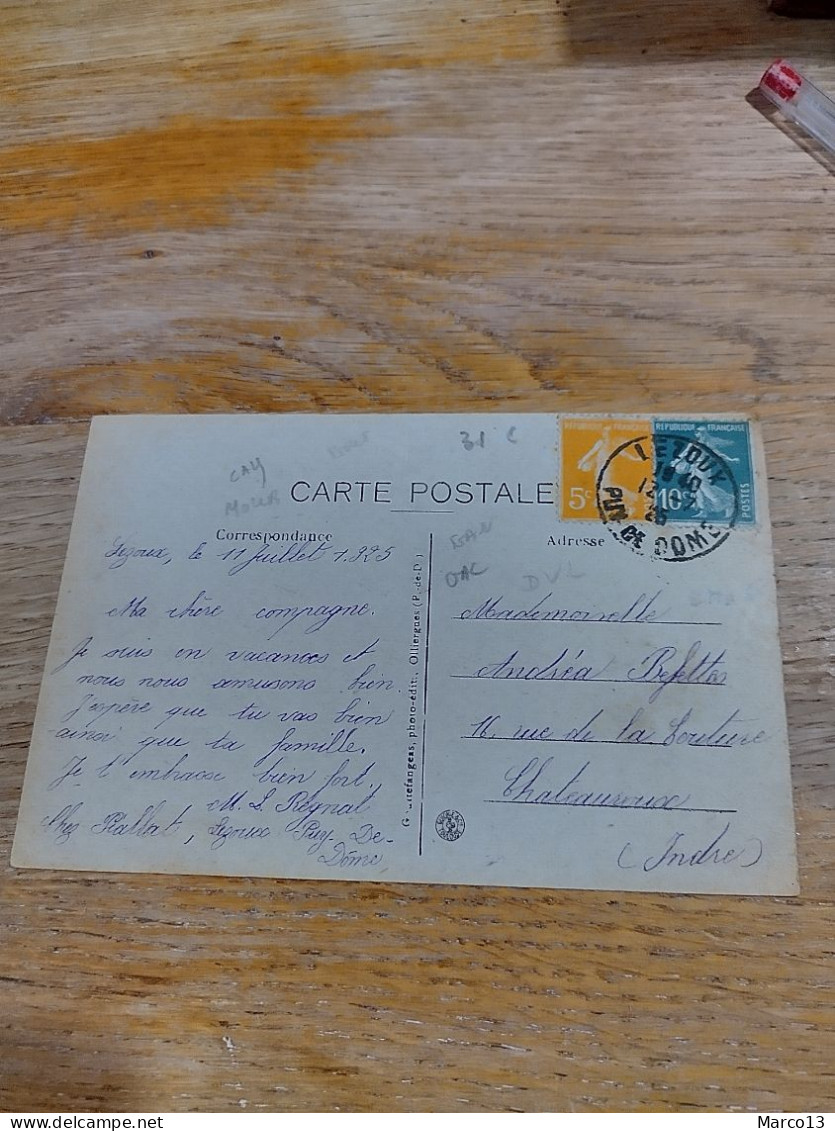 31 C
CAY
CARTE POSTALE
Correspondance
Lezoux, le 11 Juillet 1925
Ma chère compagne.
Je suis en vacances et
nous nous amusons bien.
J'espère que tu vas bien
ainsi que ta famille.
Je t'embrasse bien fort.
M. L. Regnat
Chez Rabbat, Lezoux Puy-De-
Dôme
photo-édit., Olliergues (P.-de-D.)
Adresse
DVL
Mademoiselle
Andréa
16, rue de la Couture
Chateauroux
(Indre)
REPUBLIQUE FRANÇAISE
5c
REPUBLIQUE FRANÇAISE
10c
POSTES
LEZOUX
PUY DE DOME
Marco13